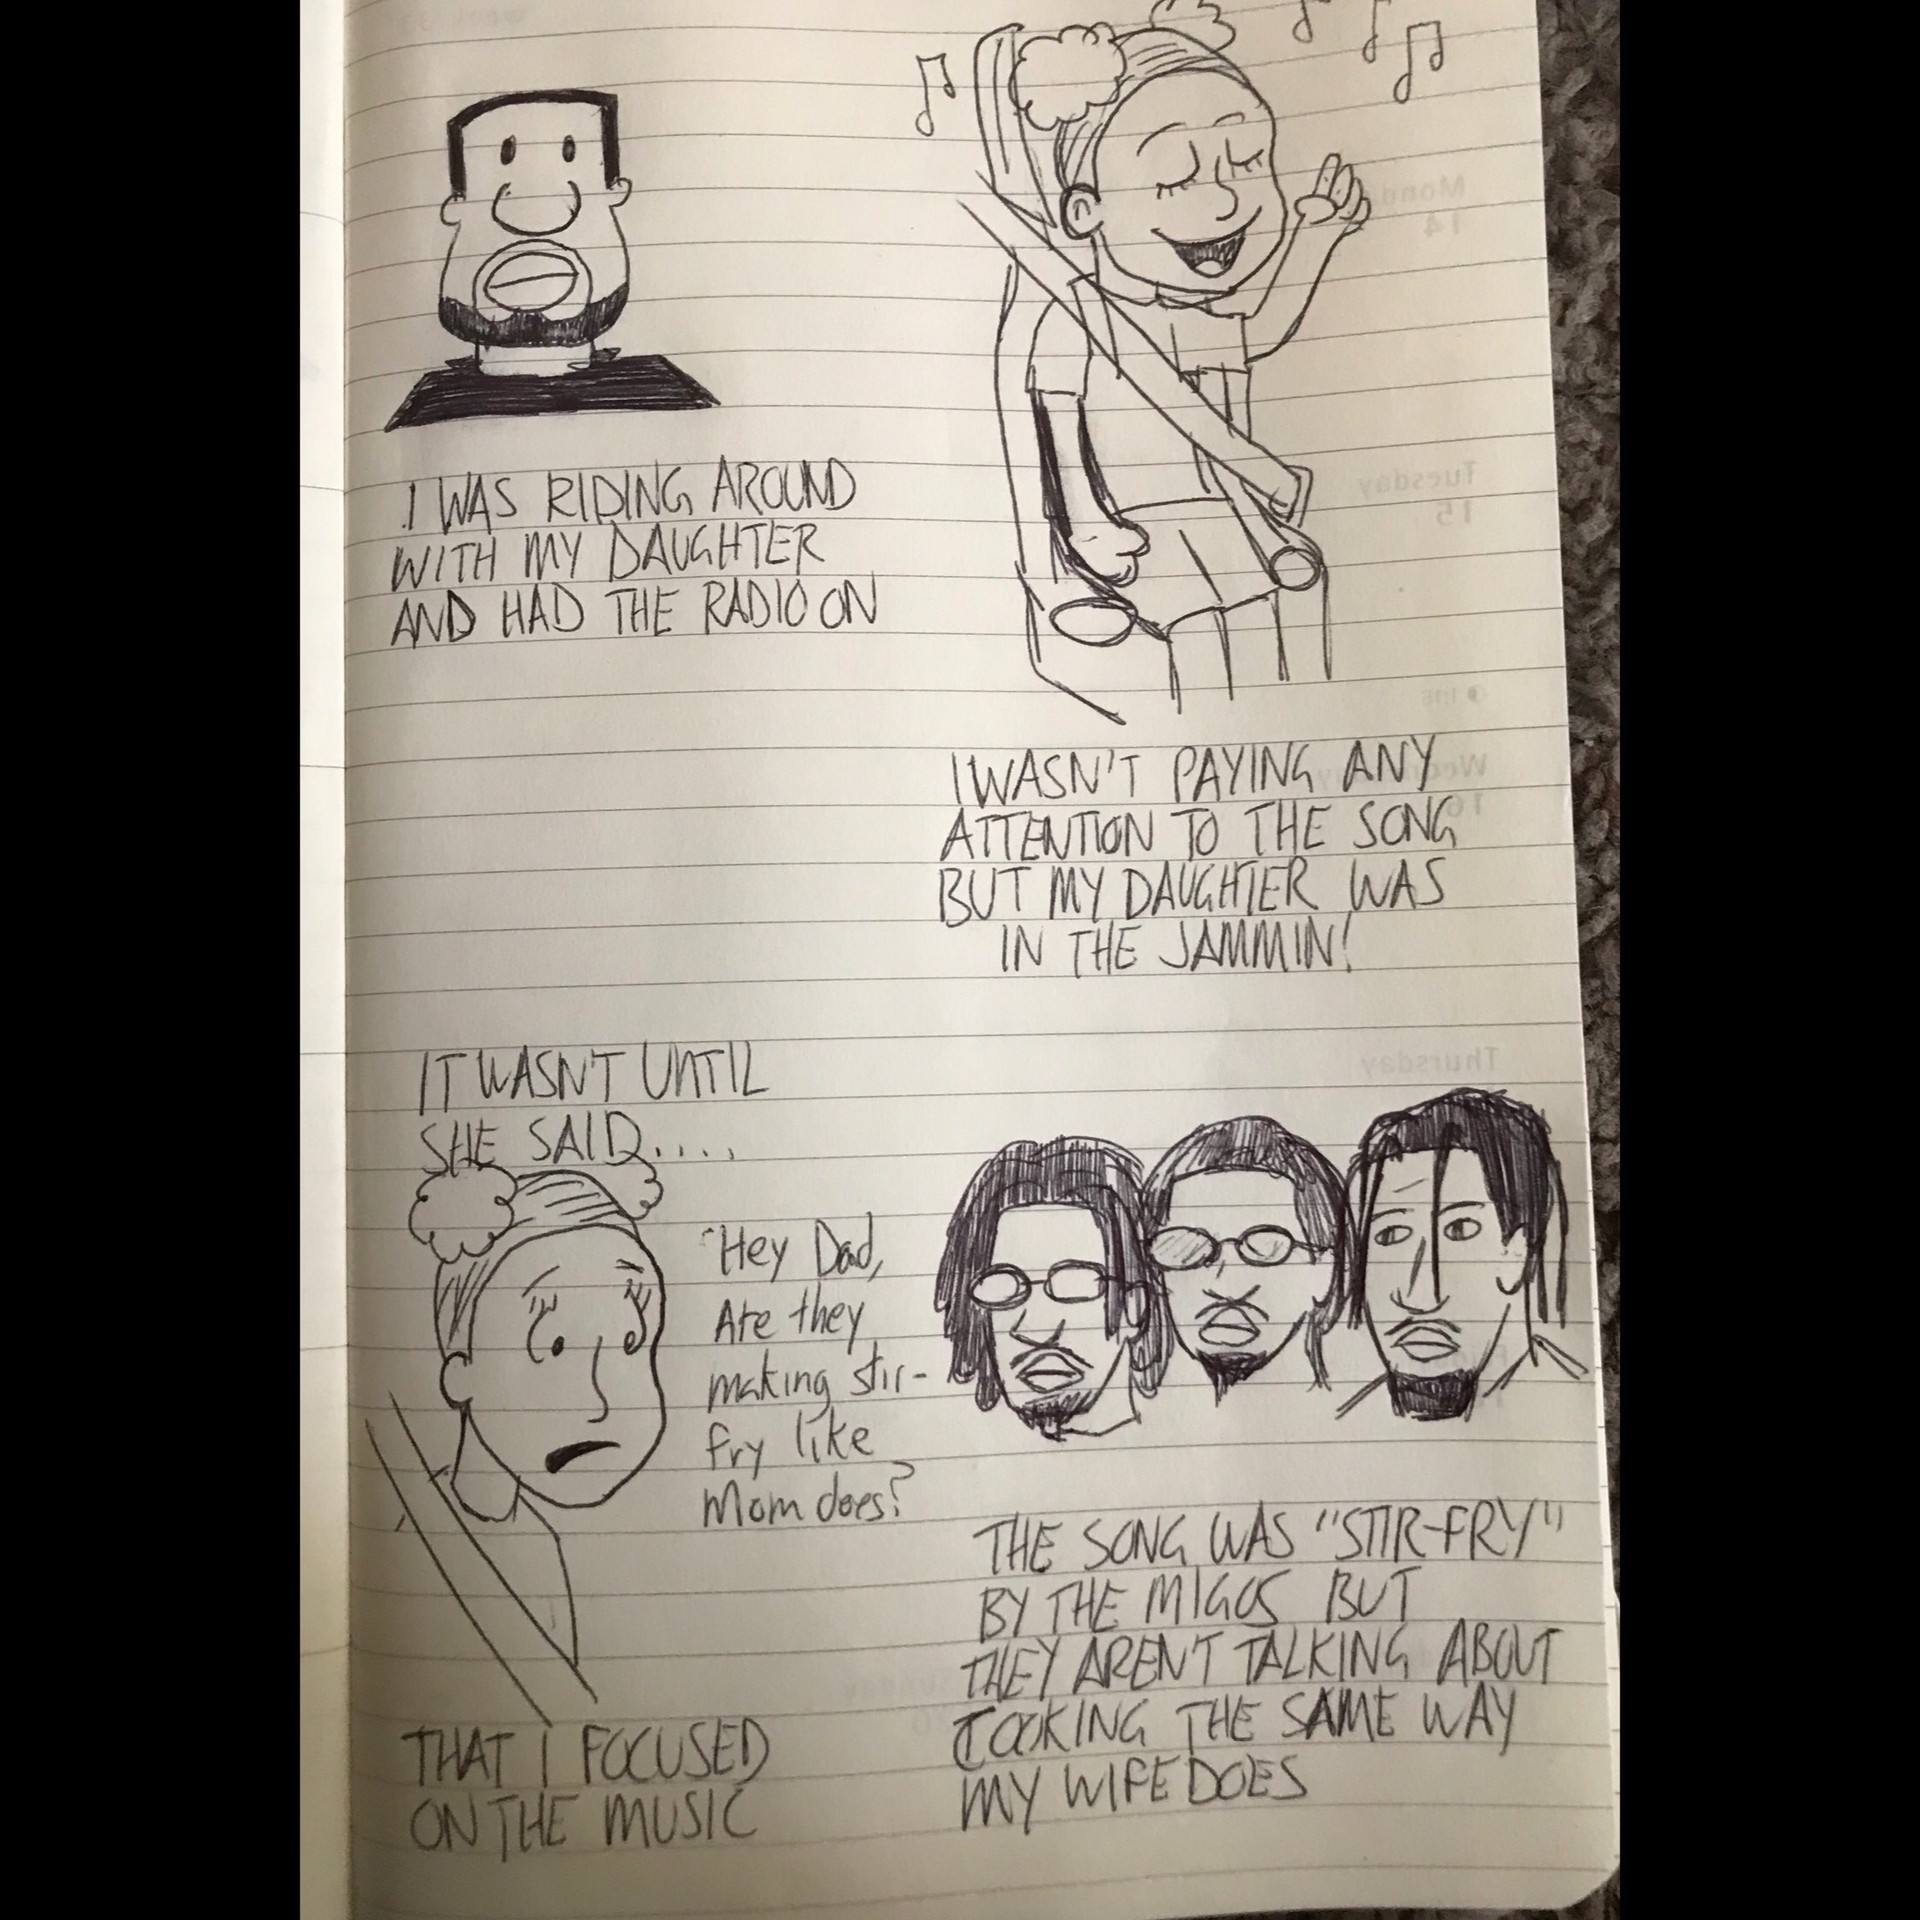 I WAS RIDING AROUND
WITH MY DAUGHTER
AND HAD THE RADIO ON
I WASN'T PAYING ANY
ATTENTION TO THE SONG
BUT MY DAUGHTER WAS
IN THE JAMMIN!
IT WASN'T UNTIL
SHE SAID....
"Hey Dad,
Are they
making stir-
fry like
Mom does?
THAT I FOCUSED
ON THE MUSIC
THE SONG WAS "STIR-FRY"
BY THE MIGOS BUT
THEY AREN'T TALKING ABOUT
COOKING THE SAME WAY
MY WIFE DOES
Monday
14
Tuesday
15
Wednesday
16
Thursday